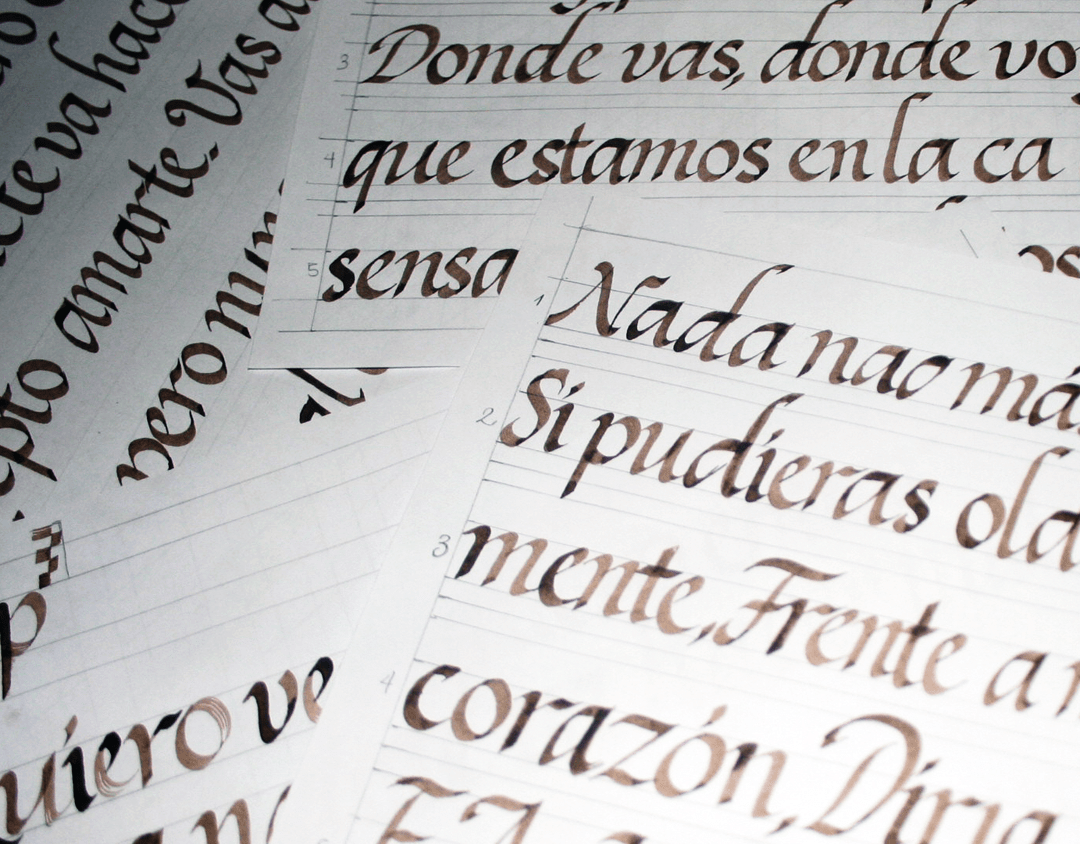 va hace
amarte. Vas a
pero
3 Donde vas, donde vo
4 que estamos en la ca
5 sensa
1 Nada nao má
2 Si pudieras ola
3 mente, Frente a
4 corazón, Diria
uiero ve